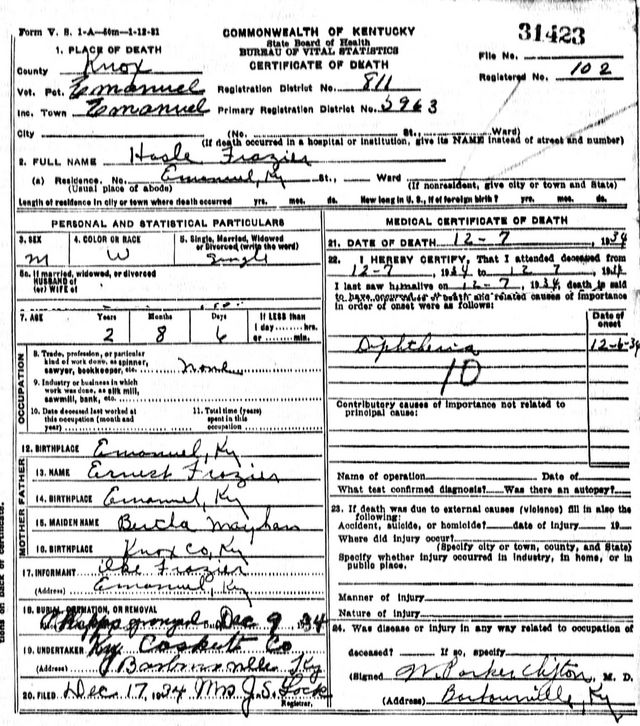 Form V. S. 1-A—50m—1-13-31
COMMONWEALTH OF KENTUCKY
State Board of Health
BUREAU OF VITAL STATISTICS
CERTIFICATE OF DEATH
31423
File No.
Registered No. 102
1. PLACE OF DEATH
County Knox
Vot. Pct. Emanuel Registration District No. 811
Inc. Town Emanuel Primary Registration District No. 5963
City (No. St., Ward)
(If death occurred in a hospital or institution, give its NAME instead of street and number)
2. FULL NAME Hasle Frazier
(a) Residence. No. Emanuel, Ky St., Ward
(Usual place of abode) (If nonresident, give city or town and State)
Length of residence in city or town where death occurred yrs. mos. ds. How long in U. S., if of foreign birth? yrs. mos. ds.
PERSONAL AND STATISTICAL PARTICULARS
3. SEX 4. COLOR OR RACE 5. Single, Married, Widowed
or Divorced (write the word)
M W Single
5a. If married, widowed, or divorced
HUSBAND of
(or) WIFE of
7. AGE Years Months Days If LESS than
1 day hrs.
or min.
2 8 6
OCCUPATION
8. Trade, profession, or particular
kind of work done, as spinner,
sawyer, bookkeeper, etc. None
9. Industry or business in which
work was done, as silk mill,
sawmill, bank, etc.
10. Date deceased last worked at
this occupation (month and
year)
11. Total time (years)
spent in this
occupation
12. BIRTHPLACE Emanuel, Ky
FATHER
13. NAME Ernest Frazier
14. BIRTHPLACE Emanuel, Ky
MOTHER
15. MAIDEN NAME Bertha
16. BIRTHPLACE Knox Co, Ky
17. INFORMANT Frazier
(Address) Emanuel, Ky
18. BURIAL, CREMATION, OR REMOVAL
Dec 9 34
19. UNDERTAKER Ky Caskett Co
(Address) Barbourville Ky
20. FILED Dec 17, 1934 Mrs J. S. Lock
Registrar.
MEDICAL CERTIFICATE OF DEATH
21. DATE OF DEATH 12-7 1934
22. I HEREBY CERTIFY, That I attended deceased from
12-7, 1934 to 12 7, 1934
I last saw him alive on 12-7, 1934, death is said
to have occurred and related causes of importance
in order of onset were as follows:
Date of
onset
Diphtheria 12-6-34
10
Contributory causes of importance not related to
principal cause:
Name of operation Date of
What test confirmed diagnosis? Was there an autopsy?
23. If death was due to external causes (violence) fill in also the
following:
Accident, suicide, or homicide? date of injury 19
Where did injury occur?
(Specify city or town, county, and State)
Specify whether injury occurred in industry, in home, or in
public place.
Manner of injury
Nature of injury
24. Was disease or injury in any way related to occupation of
deceased? If so, specify
(Signed) Parker Clifton, M. D.
(Address) Barbourville, Ky